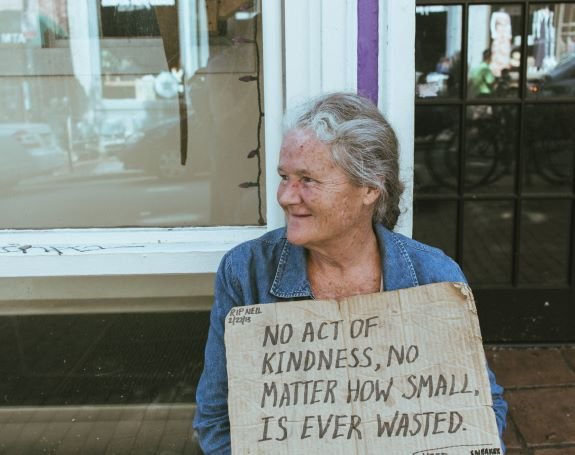 RIP NEIL
2/22/13
NO ACT OF
KINDNESS, NO
MATTER HOW SMALL,
IS EVER WASTED.
SNEAKER